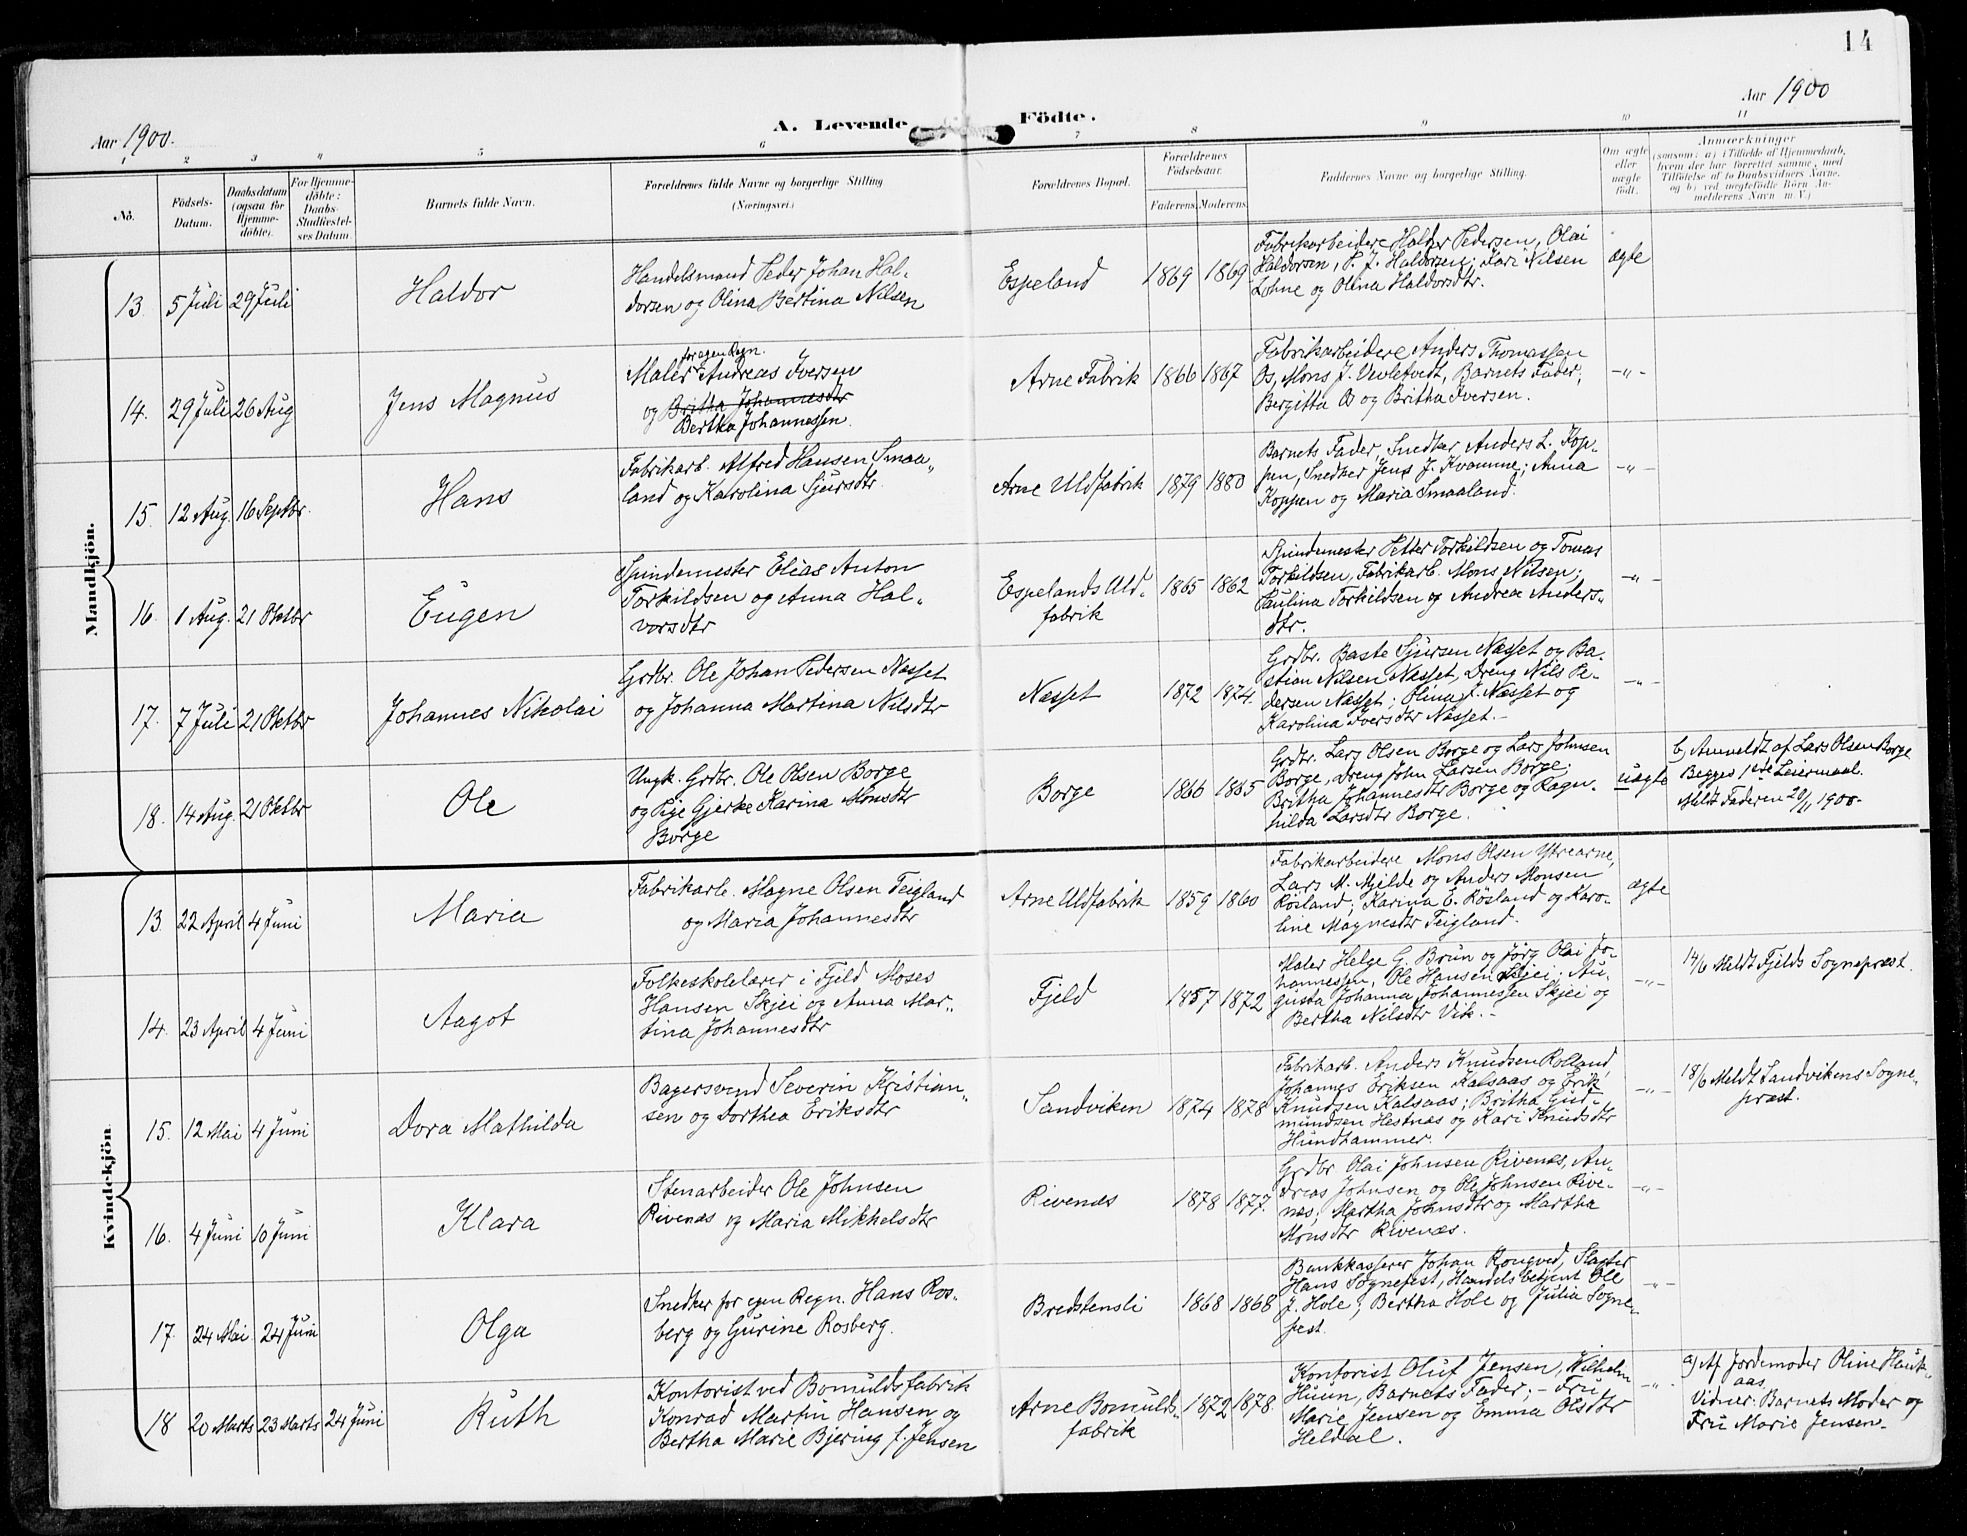 14
Aar 1900.
A. Levende Födte.
Aar 1900
1 2 3 4 5 6 7 8 9 10 11
No.
Födsels-
Datum.
Daabsdatum
(ogsaa for
Hjemme-
döbte).
For Hjemme-
döbte:
Daabs-
Stadfæstel-
ses Datum.
Barnets fulde Navn.
Forældrenes fulde Navne og borgerlige Stilling
(Næringsvei.)
Forældrenes Bopæl.
Forældrenes
Födselsaar.
Faderens. Moderens.
Faddernes Navne og borgerlige Stilling.
Om ægte
eller
uægte
födt.
Anmærkninger
(saasom: a) i Tilfælde af Hjemmedaab,
hvem der har forrettet samme, med
Tilföielse af to Daabsvidners Navne,
og b) ved uægtefödte Börn An-
melderens Navn m. V.)
Mandkjön.
13. 5 Juli 29 Juli
Haldor
Handelsmand Peder Johan Hal-
dorsen og Olina Bertina Nilsen
Espeland
1869 1869
Fabrikarbeidere Haldor Pedersen, Olai
Haldorsen, P. J. Haldorsen; Kari Nilsen
Lohne og Olina Haldorsdtr.
ægte
14. 29 Juli 26 Aug
Jens Magnus
for egen Regn.
Maler Andreas Iversen
og Britha Johannesdtr
Bertha Johannessen.
Arne Fabrik
1866 1867
Fabrikarbeidere Anders Thomassen
Os, Mons J. Vevletvedt, Barnets Fader;
Bergitta Os og Britha Iversen.
-"-
15. 12 Aug. 16 Septbr.
Hans
Fabrikarb. Alfred Hansen Smaa-
land og Karolina Sjursdtr.
Arne Uldfabrik
1879 1880
Barnets Fader, Snedker Anders L. Kop-
pen, Snedker Jens J. Kvamme; Anna
Koppen og Maria Smaaland.
-"-
16. 1 Aug. 21 Oktbr
Eugen
Spindemester Elias Anton
Torkildsen og Anna Hal-
vorsdtr
Espelands Uld-
fabrik
1865 1862
Spindemester Petter Torkildsen og Tomas
Torkildsen, Fabrikarb. Mons Nilsen;
Paulina Torkildsen og Andrea Anders-
dtr.
-"-
17. 7 Juli 21 Oktbr
Johannes Nikolai
Grdbr. Ole Johan Pedersen Næsset
og Johanna Martina Nilsdtr
Næsset
1872 1874.
Grdbr. Baste Sjursen Næsset og Ba-
stian Nilsen Næsset, Dreng Nils Pe-
dersen Næsset; Olina J. Næsset og
Karolina Iversdtr Næsset.-
-"-
18. 14 Aug. 21 Oktbr
Ole
Ungk. Grdbr. Ole Olsen Borge
og Pige Gjerke Karina Monsdtr
Borge
Borge
1866 1865
Grdbr. Lars Olsen Borge og Lars Johnsen
Borge, Dreng John Larsen Borge;
Britha Johannesdtr Borge og Ragn-
hilda Larsdtr Borge.
uægte
b) Anmeldt af Lars Olsen Borge
Begges 1ste Leiermaal.
Meldt Faderen 20/11 1900.
Kvindekjön.
13. 22 April 4 Juni
Maria
Fabrikarb. Magne Olsen Teigland
og Maria Johannesdtr
Arne Uldfabrik
1859 1860
Fabrikarbeidere Mons Olsen Ytrearne,
Lars M. Mjelde og Anders Monsen
Røsland; Karina E. Røsland og Karo-
line Magnesdtr Teigland.
ægte
14. 23 April 4 Juni
Aagot
Folkeskolelærer i Fjeld Moses
Hansen Skjei og Anna Mar-
tina Johannesdtr
Fjeld
1857 1872
Maler Helge G. Brun og Jørg. Olai Jo-
hannessen, Ole Hansen Skjei; Au-
gusta Johanna Johannessen Skjei og
Bertha Nilsdtr Vik.-
-"-
14/6 Meldt Fjelds Sognepræst.
15. 12 Mai 4 Juni
Dora Mathilda
Bagersvend Severin Kristian-
sen og Dorthea Eriksdtr
Sandviken
1874 1878
Fabrikarb. Anders Knudsen Rolland,
Johannes Eriksen Kalsaas og Erik
Knudsen Kalsaas; Britha Gud-
mundsen Hestnæs og Kari Knudsdtr
Hundhammer.
-"-
18/6 Meldt Sandvikens Sogne-
præst.
16. 4 Juni 10 Juni
Klara
Stenarbeider Ole Johnsen
Rivenæs og Maria Mikkelsdtr
Rivenæs
1878 1877.
Grdbr Olai Johnsen Rivenæs, An-
dreas Johnsen og Ole Johnsen Rive-
næs; Martha Johnsdtr og Martha
Monsdtr Rivenæs.
-"-
17. 24 Mai 24 Juni
Olga
Snedker for egen Regn. Hans Ros-
berg og Gurine Rosberg.
Bredstensli
1868 1868
Bankkasserer Johan Rongved, Slagter
Hans Sognefest, Handelsbetjent Ole
J. Hole; Bertha Hole og Julia Sogne-
fest.
-"-
18 20 Marts 23 Marts 24 Juni
Ruth
Kontorist ved Bomuldsfabrik
Konrad Martin Hansen og
Bertha Marie Bjering f. Jensen
Arne Bomulds-
fabrik
1872 1878.
Kontorist Oluf Jensen, Vilhelm
Huun, Barnets Fader; - Fru
Marie Jensen og Emma Olsdtr
Heldal.
-"-
a) Af Jordemoder Oline Hauk-
aas
Vidner: Barnets Moder og
Fru Marie Jensen.